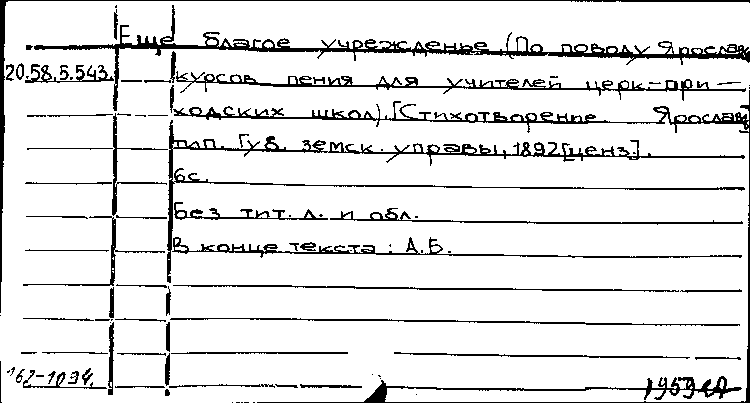 Еще благое учрежденье. (По поводу Ярослав
20.58.5.543. курсов пения для учителей церк-при-
ходских школ). [Стихотворение. Ярославль]
тип. Губ. земск. управы, 1892 [ценз].
6с.
Без тит. л. и обл.
В конце текста: А.Б.
162-1094.
1959